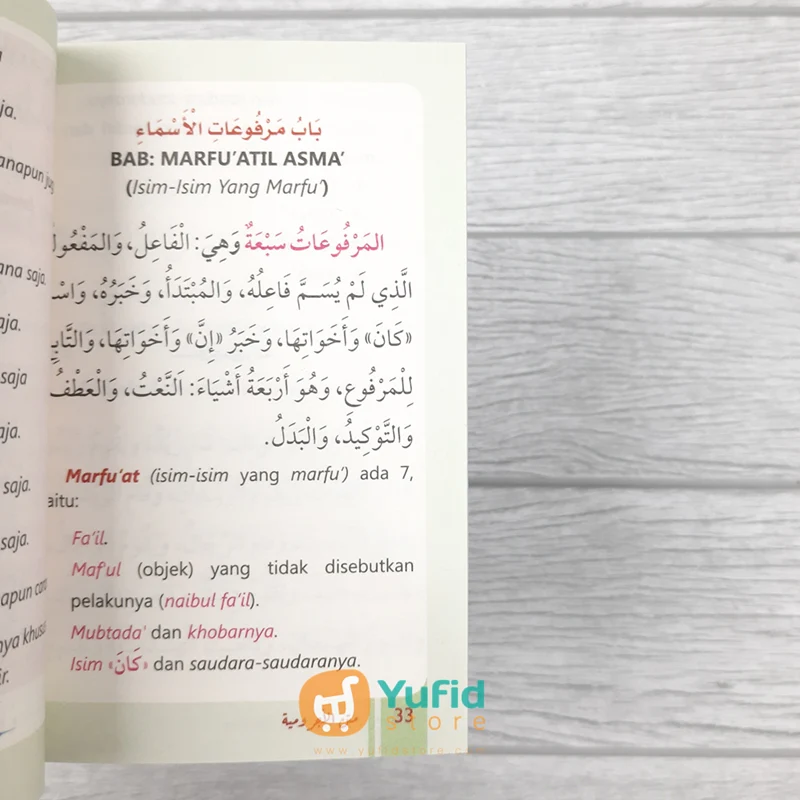 ja.
anapun jug
ana saja.
aja.
saja
aja.
saja.
saja.
apun cara
nya khusu
ir.
بَابُ مَرْفُوعَاتِ الْأَسْمَاءِ
BAB: MARFU'ATIL ASMA'
(Isim-Isim Yang Marfu')
المَرْفُوعَاتُ سَبْعَةٌ وَهِيَ: الْفَاعِلُ، وَالمَفْعُولُ
الَّذِي لَمْ يُسَمَّ فَاعِلُهُ، وَالمُبْتَدَأُ، وَخَبَرُهُ، وَاسْ
«كَانَ» وَأَخَوَاتِهَا، وَخَبَرُ «إِنَّ» وَأَخَوَاتِهَا، وَالتَّابِ
لِلْمَرْفُوعِ، وَهُوَ أَرْبَعَةُ أَشْيَاءَ: اَلنَّعْتُ، وَالْعَطْفُ
وَالتَّوْكِيدُ، وَالْبَدَلُ.
Marfu'at (isim-isim yang marfu') ada 7,
aitu:
Fa'il.
Maf'ul (objek) yang tidak disebutkan
pelakunya (naibul fa'il).
Mubtada' dan khobarnya.
Isim «كَانَ» dan saudara-saudaranya.
متن الآجرومية 33
Yufid
store
www.yufidstore.com